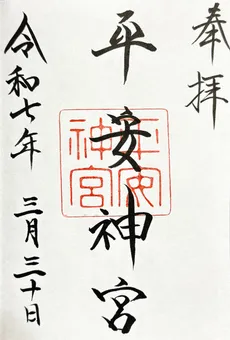 奉拝
平安神宮
平安神宮
令和七年 三月三十日